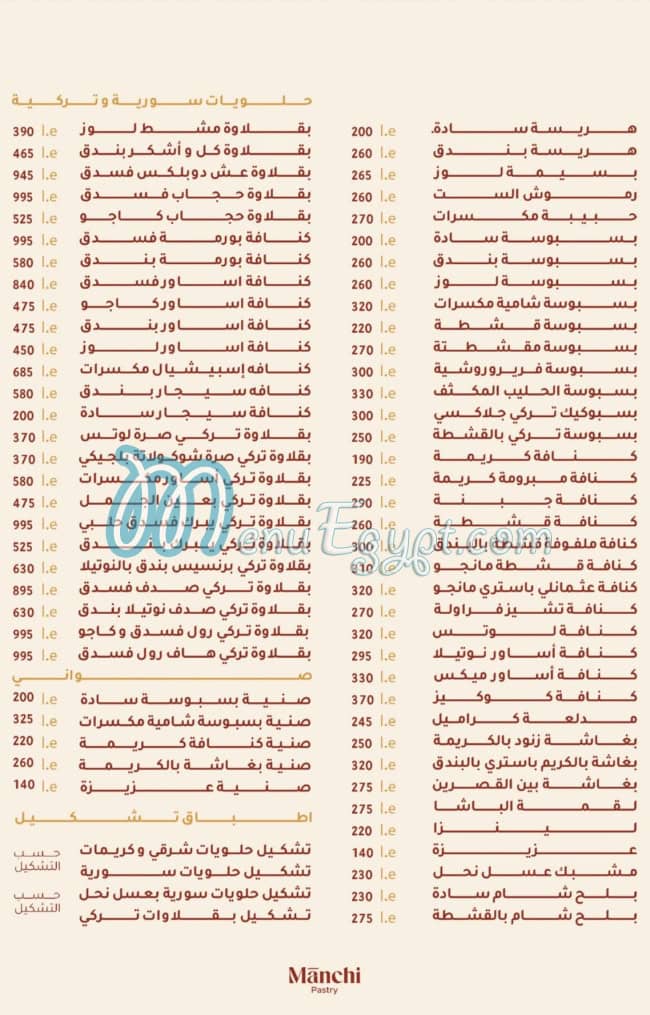 هريسة سادة. 200 l.e
هريسة بندق 260 l.e
بسيمة لوز 265 l.e
رموش الست 260 l.e
حبيبة مكسرات 270 l.e
بسبوسة سادة 200 l.e
بسبوسة بندق 260 l.e
بسبوسة لوز 260 l.e
بسبوسة شامية مكسرات 320 l.e
بسبوسة قشطة 220 l.e
بسبوسة مقشطتة 270 l.e
بسبوسة فريروروشية 300 l.e
بسبوسة الحليب المكثف 330 l.e
بسبوكيك تركي جلاكسي 300 l.e
بسبوسة تركي بالقشطة 250 l.e
كنافة كريمة 190 l.e
كنافة مبرومة كريمة 225 l.e
كنافة جبنة 290 l.e
كنافة قشطة 260 l.e
كنافة ملفوفة قشطة بالبندق 300 l.e
كنافة قشطة مانجو 310 l.e
كنافة عثمانلي باستري مانجو 320 l.e
كنافة تشيز فراولة 270 l.e
كنافة لوتس 320 l.e
كنافة أساور نوتيلا 295 l.e
كنافة أساور ميكس 330 l.e
كنافة كوكيز 370 l.e
مدلعة كراميل 245 l.e
بغاشة زنود بالكريمة 250 l.e
بغاشة بالكريم باستري بالبندق 320 l.e
بغاشة بين القصرين 275 l.e
لقمة الباشا 275 l.e
لينزا 220 l.e
عزيزة 140 l.e
مشبك عسل نحل 230 l.e
بلح شام سادة 230 l.e
بلح شام بالقشطة 275 l.e
حلويات سورية وتركية
بقلاوة مشط لوز 390 l.e
بقلاوة كل و أشكر بندق 465 l.e
بقلاوة عش دوبلكس فسدق 945 l.e
بقلاوة حجاب فسدق 995 l.e
بقلاوة حجاب كاجو 525 l.e
كنافة بورمة فسدق 995 l.e
كنافة بورمة بندق 580 l.e
كنافة اساور فسدق 840 l.e
كنافة اساور كاجو 475 l.e
كنافة اساور بندق 475 l.e
كنافة اساور لوز 450 l.e
كنافه إسبيشيال مكسرات 685 l.e
كنافه سيجار بندق 580 l.e
كنافة سيجار سادة 200 l.e
بقلاوة تركي صرة لوتس 370 l.e
بقلاوة تركي صرة شوكولاتة بلجيكي 370 l.e
بقلاوة تركي أساور مكسرات 580 l.e
بقلاوة تركي بعين الجمل 475 l.e
بقلاوة تركي بيرك فسدق حلبي 995 l.e
بقلاوة تركي بيرك بندق 525 l.e
بقلاوة تركي برنسيس بندق بالنوتيلا 630 l.e
بقلاوة تركي صدف فسدق 895 l.e
بقلاوة تركي صدف نوتيلا بندق 630 l.e
بقلاوة تركي رول فسدق وكاجو 995 l.e
بقلاوة تركي هاف رول فسدق 995 l.e
صواني
صنية بسبوسة سادة 200 l.e
صنية بسبوسة شامية مكسرات 325 l.e
صنية كنافة كريمة 220 l.e
صنية بغاشة بالكريمة 260 l.e
صنية عزيزة 140 l.e
اطباق تشكيل
تشكيل حلويات شرقي وكريمات
تشكيل حلويات سورية
حسب التشكيل
تشكيل حلويات سورية بعسل نحل
تشكيل بقلاوات تركي
حسب التشكيل
MenuEgypt.com
Manchi
Pastry